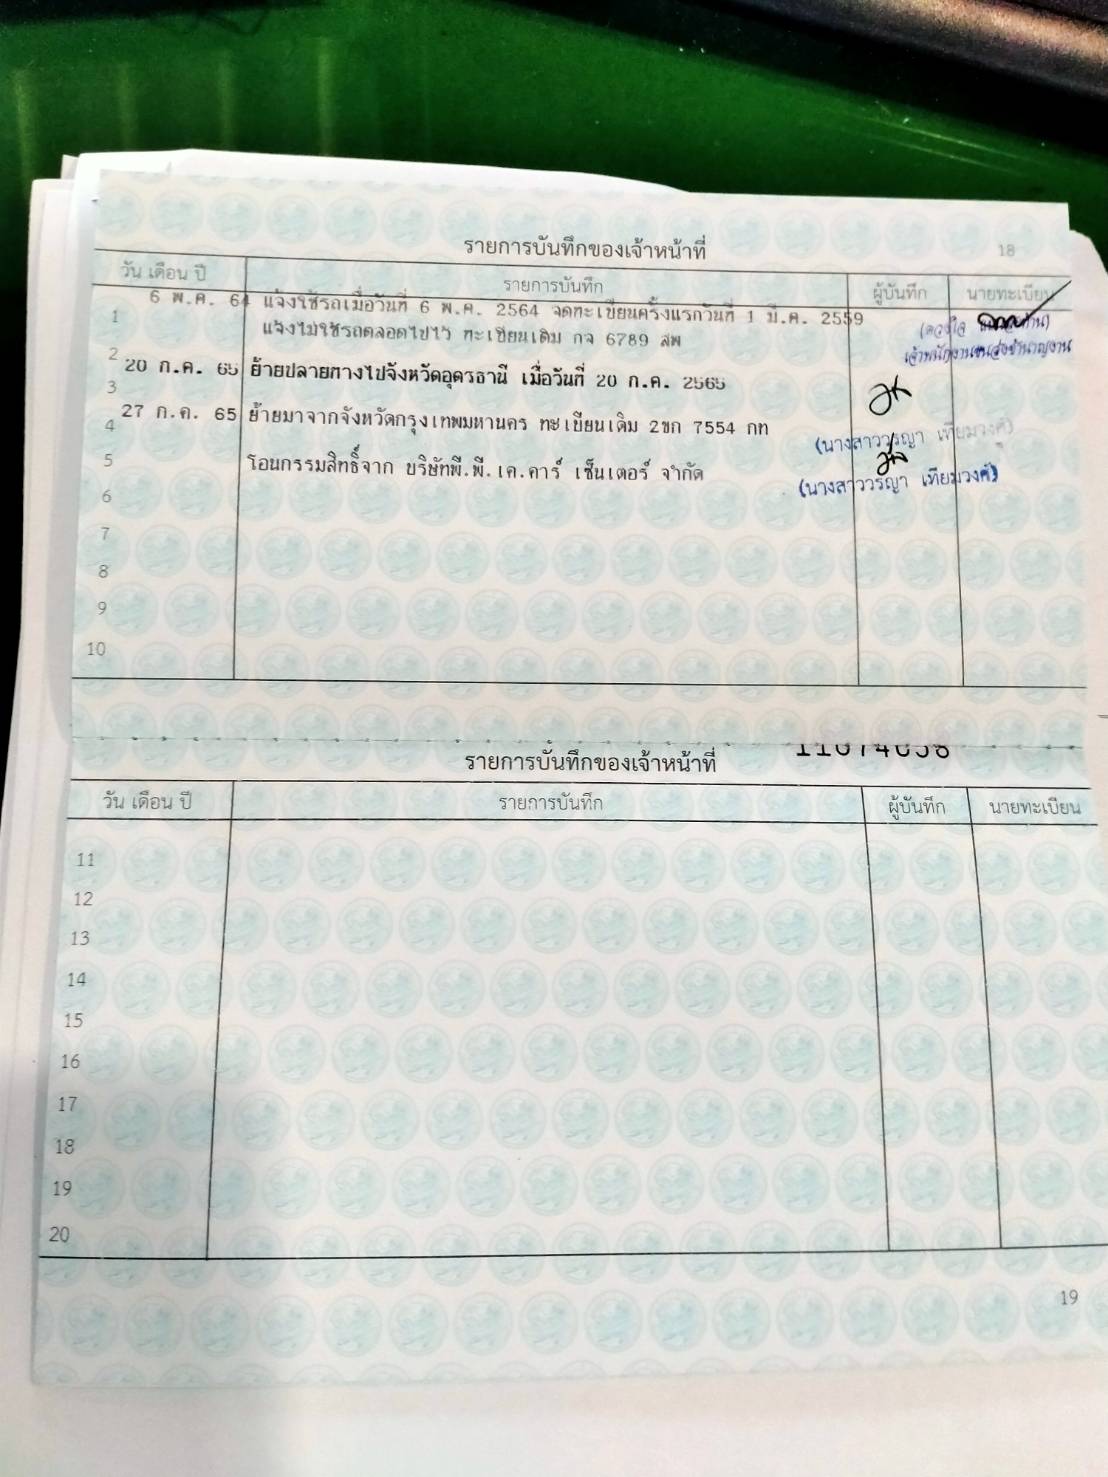 รายการบันทึกของเจ้าหน้าที่ 18
วัน เดือน ปี รายการบันทึก ผู้บันทึก นายทะเบียน
6 พ.ค. 64 แจ้งใช้รถเมื่อวันที่ 6 พ.ค. 2564 จดทะเบียนครั้งแรกวันที่ 1 มี.ค. 2559
1
แจ้งไม่ใช้รถตลอดไปไว้ ทะเบียนเดิม กจ 6789 สพ
(ดวงใจ
เจ้าพนักงานขนส่งชำนาญงาน
2
20 ก.ค. 65 ย้ายปลายทางไปจังหวัดอุดรธานี เมื่อวันที่ 20 ก.ค. 2565
3
27 ก.ค. 65 ย้ายมาจากจังหวัดกรุงเทพมหานคร ทะเบียนเดิม 2ขก 7554 กท
4
(นางสาววรัญา เทียมวงค์)
5 โอนกรรมสิทธิ์จาก บริษัทพี.พี.เค.คาร์ เซ็นเตอร์ จำกัด
(นางสาววรัญา เทียมวงค์)
6
7
8
9
10
11074656
รายการบันทึกของเจ้าหน้าที่
วัน เดือน ปี รายการบันทึก ผู้บันทึก นายทะเบียน
11
12
13
14
15
16
17
18
19
20
19